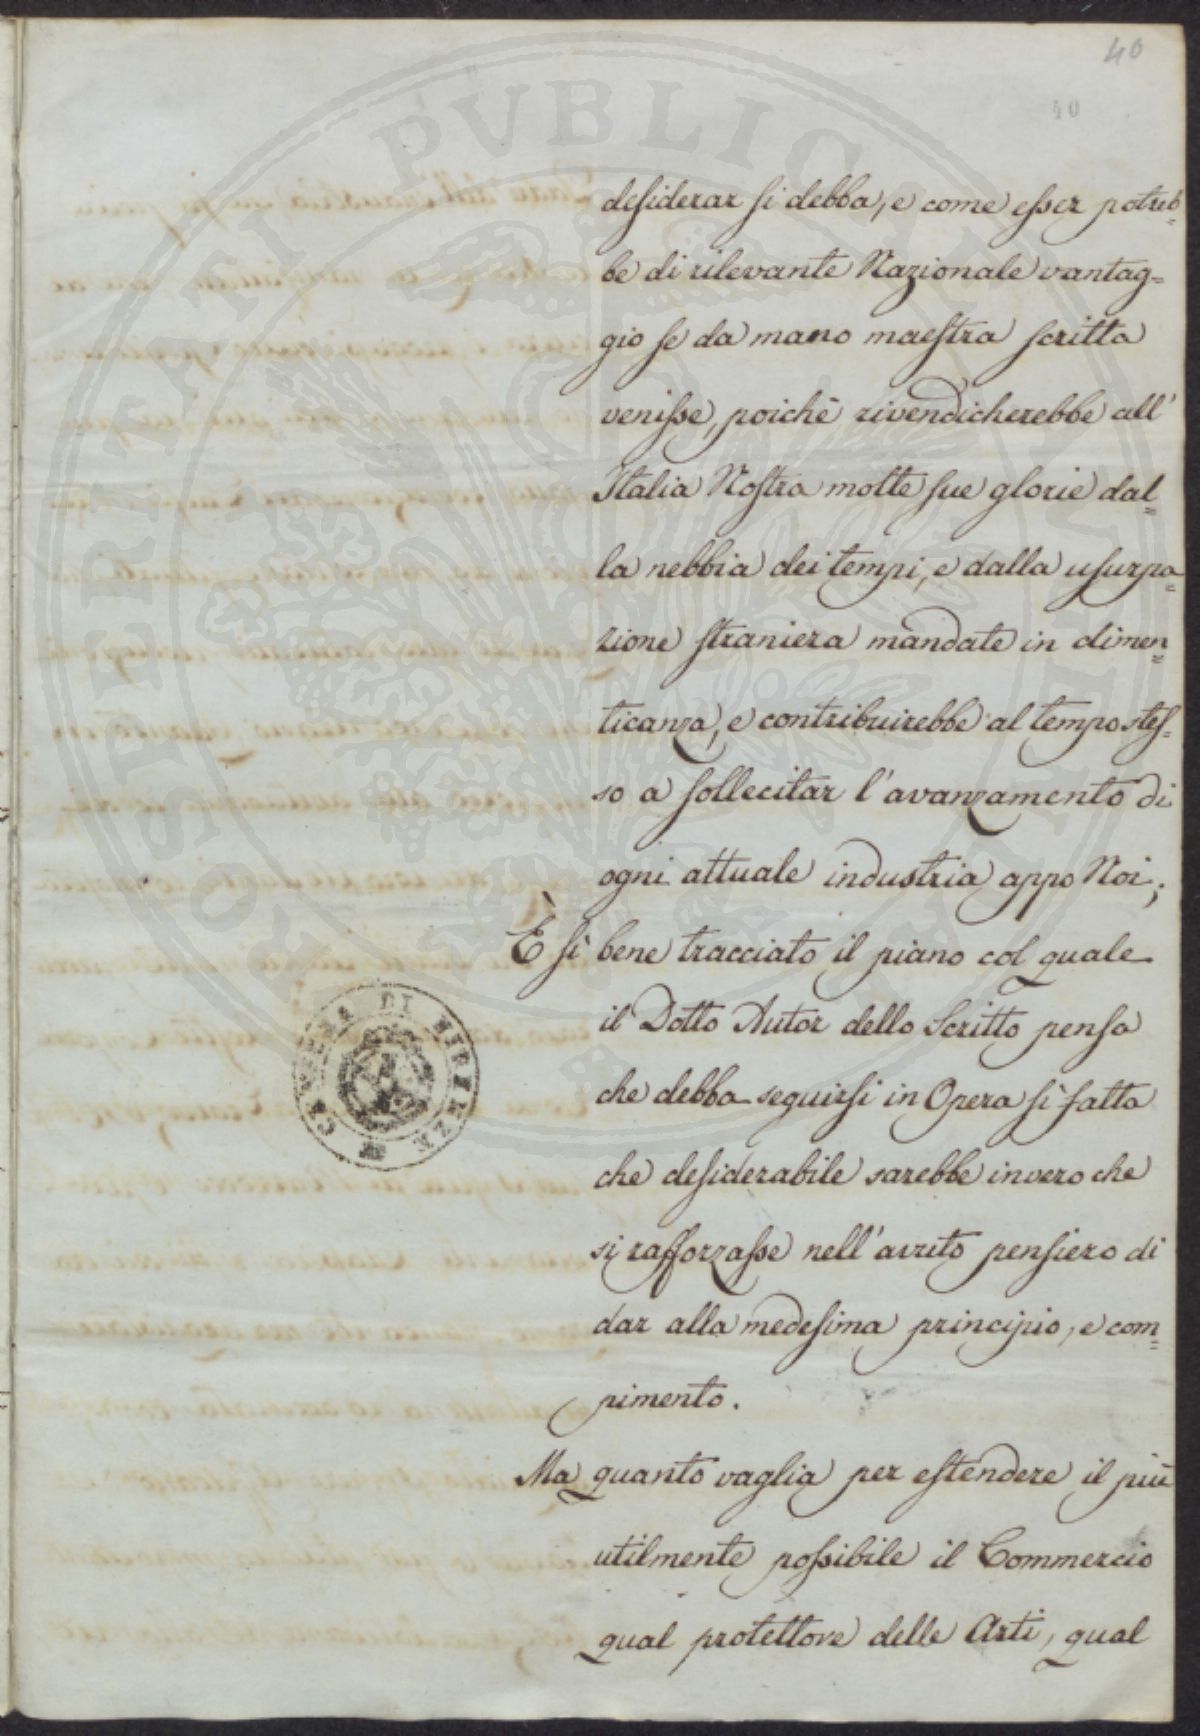 40
40
desiderar si debba, e come esser potreb=
be di rilevante Nazionale vantag=
gio se da mano maestra scritta
venisse, poichè rivendicherebbe all'
Italia Nostra molte sue glorie dal=
la nebbia dei tempi, e dalla usurpa=
zione straniera mandate in dimen=
ticanza, e contribuirebbe al tempo stes=
so a sollecitar l'avanzamento di
ogni attuale industria appo Noi;
È sì bene tracciato il piano col quale
il Dotto Autor dello Scritto pensa
che debba seguirsi in Opera sì fatta
che desiderabile sarebbe invero che
si rafforzasse nell'avuto pensiero di
dar alla medesima principio, e com=
pimento.
Ma quanto vaglia per estendere il più
utilmente possibile il Commercio
qual protettore delle Arti, qual
CAMERA DI FIRENZE
PROSPERITATI PVBLICAE